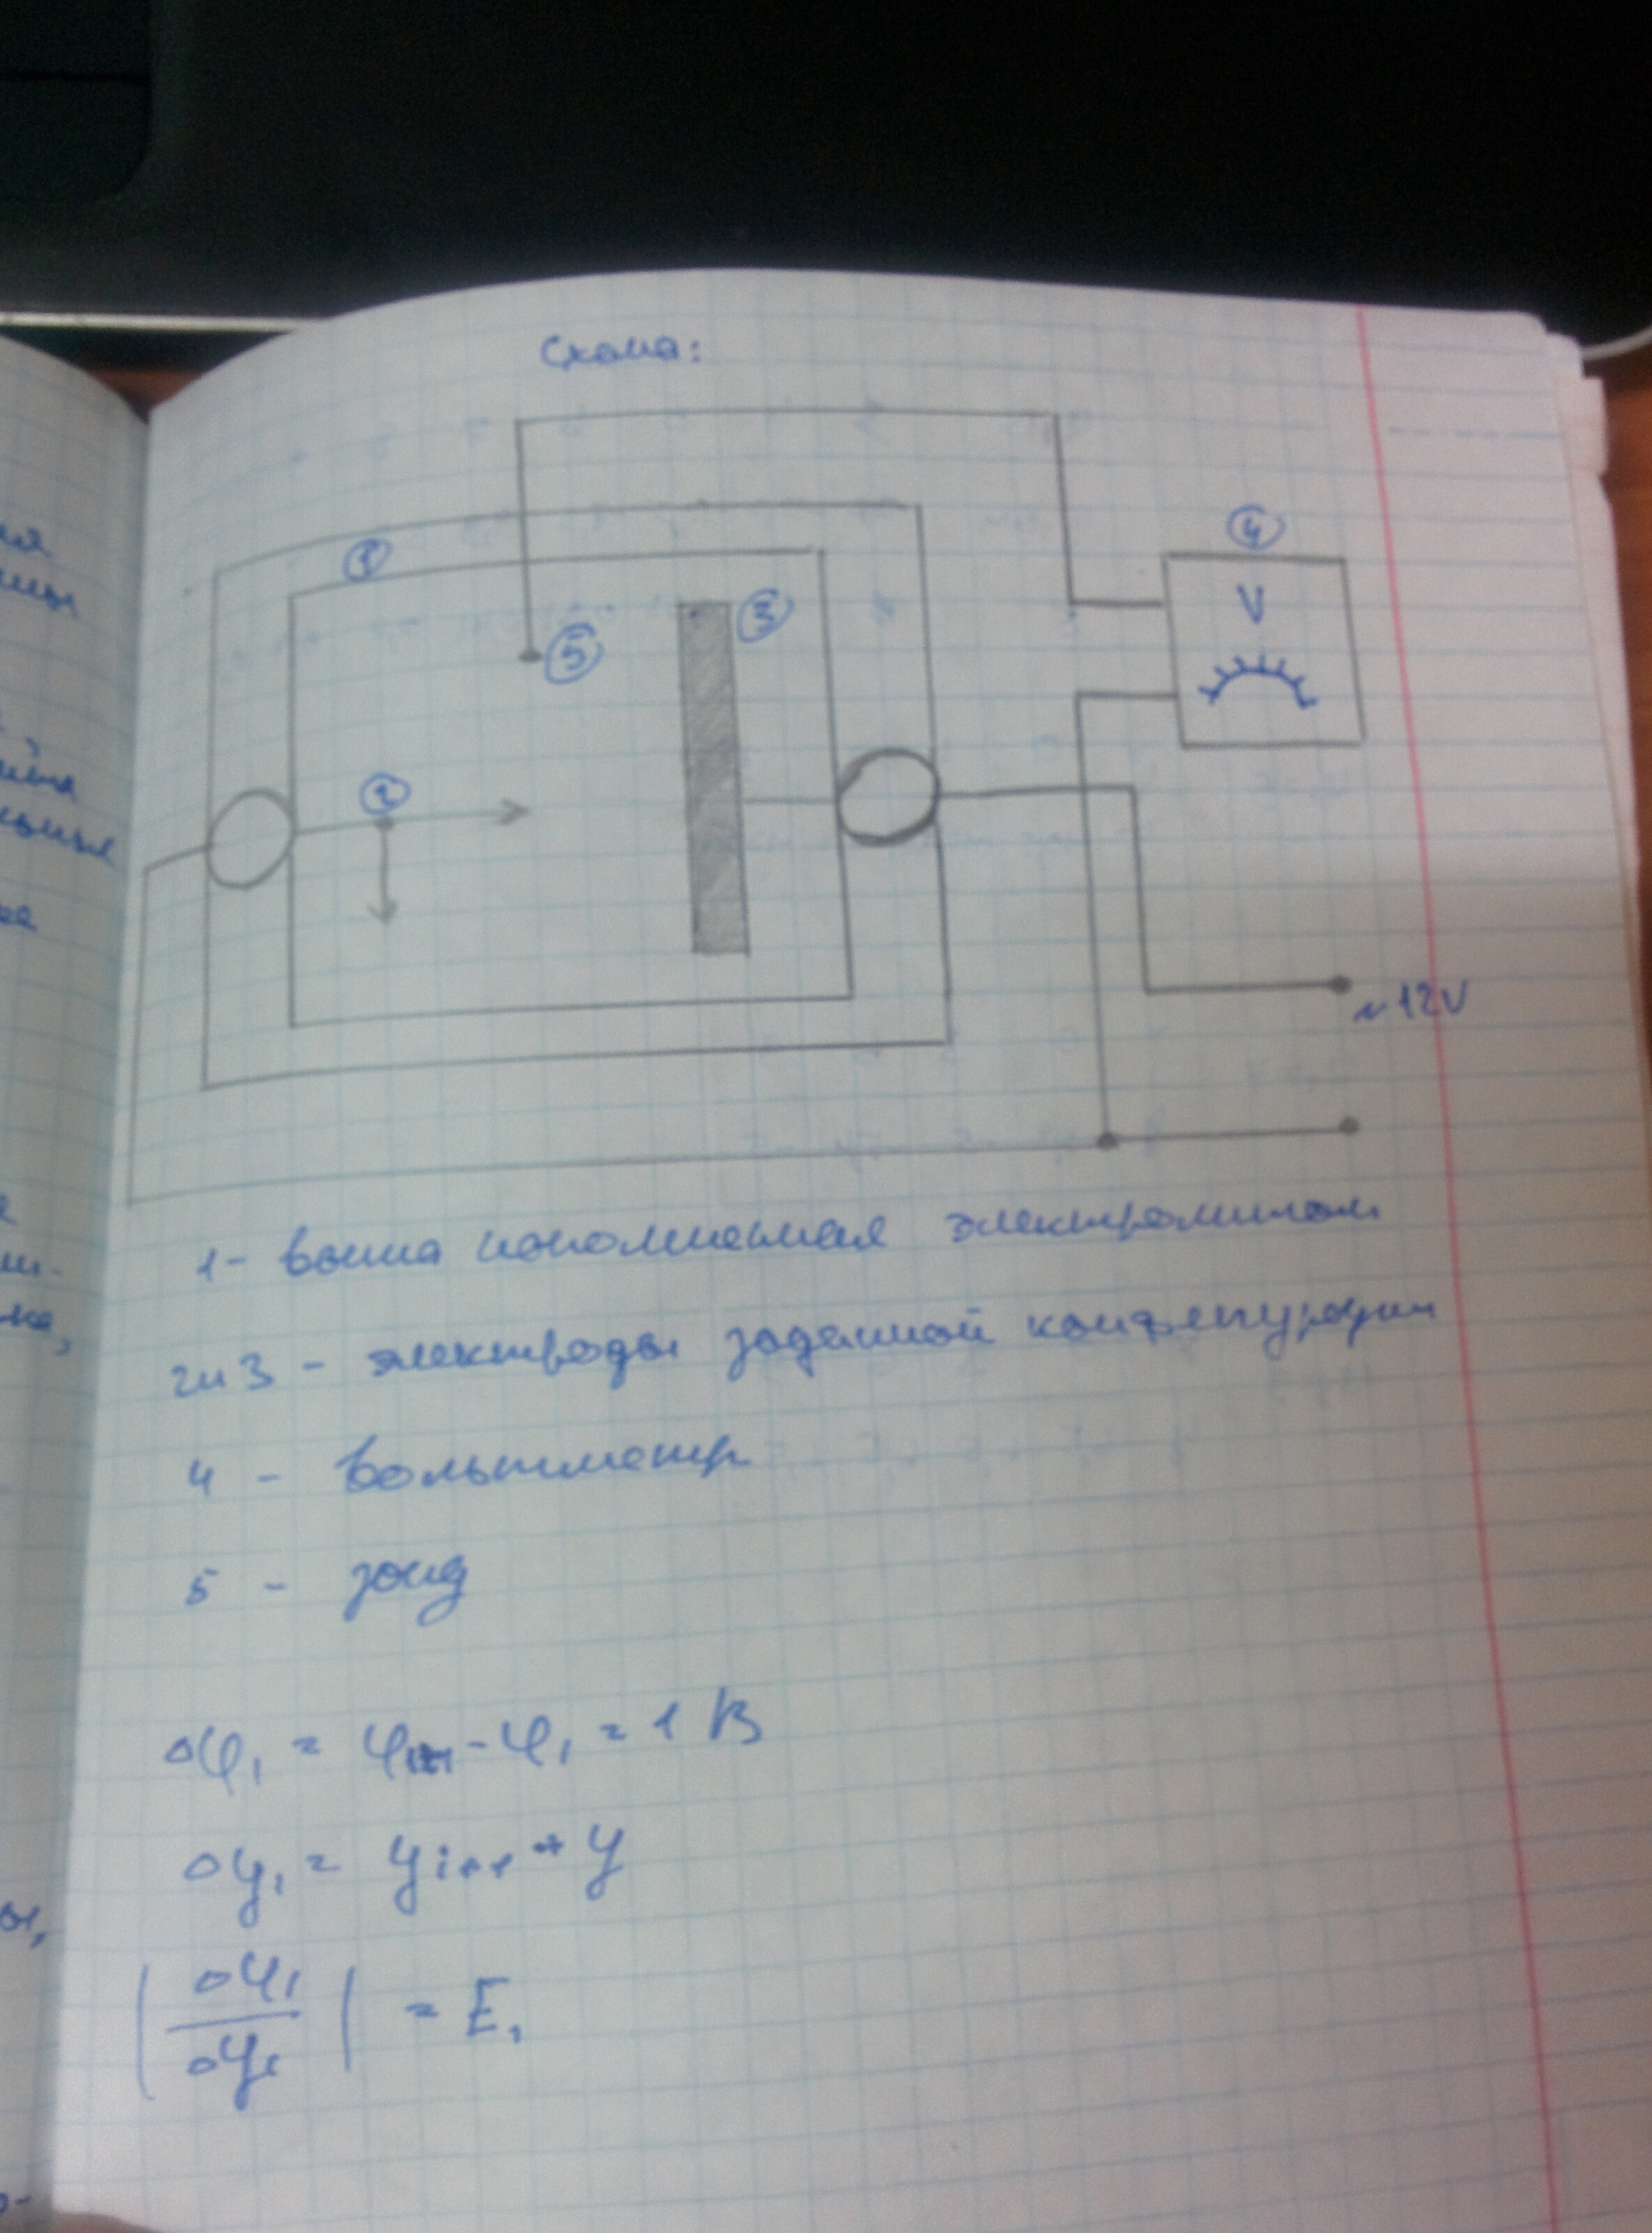 Схема:
1
4
V
3
5
2
~12V
1- ванна наполненная электролитом
2и3 - электроды заданной конфигурации
4 - Вольтметр
5 - зонд
Δφ₁ = φᵢ₊₁ - φ₁ = 1 В
Δy₁ = yᵢ₊₁ - y
|Δφ₁/Δy₁| = E₁